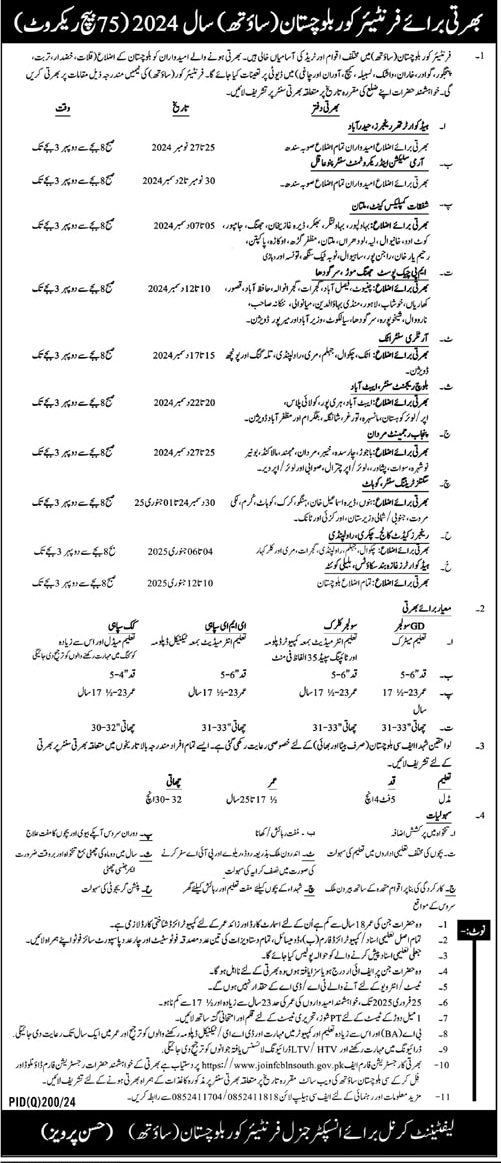 بھرتی برائے فرنٹیئر کور بلوچستان (ساؤتھ) سال 2024 (75 بیچ ریکروٹ)
1- فرنٹیئر کور بلوچستان (ساؤتھ) میں مختلف اقوام اور ٹریڈ کی آسامیاں خالی ہیں۔ بھرتی ہونے والے امیدواران کو بلوچستان کے اضلاع (قلات، خضدار، تربت،
پنجگور، گوادر، خاران، واشک، لسبیلہ، کیچ، آوران اور چاغی) میں ڈیوٹی پر تعینات کیا جائے گا۔ فرنٹیئر کور (ساؤتھ) کی ٹیمیں مندرجہ ذیل مقامات پر بھرتی کریں
گی۔ خواہشمند حضرات اپنے ضلع کی مقررہ تاریخ پر متعلقہ بھرتی سنٹر پر تشریف لائیں۔
بھرتی دفتر تاریخ وقت
ا۔ ہیڈ کوارٹر تھر رینجرز، حیدرآباد
بھرتی برائے اضلاع امیدواران تمام اضلاع صوبہ سندھ 25 تا 27 نومبر 2024 صبح 8 بجے سے دوپہر 3 بجے تک
ب۔ آرمی سلیکشن اینڈ ریکروٹمنٹ سنٹر پنوعاقل
بھرتی برائے اضلاع امیدواران تمام اضلاع صوبہ سندھ۔ 30 نومبر تا 2 دسمبر 2024 صبح 8 بجے سے دوپہر 3 بجے تک
پ۔ شفقات کمپلیکس کینٹ، ملتان
بھرتی برائے اضلاع: بہاولپور، بہاولنگر، بھکر، ڈیرہ غازیخان، جھنگ، جامپور، 05 تا 07 دسمبر 2024 صبح 8 بجے سے دوپہر 3 بجے تک
کوٹ ادو، خانیوال، لیہ، لودھراں، ملتان، مظفر گڑھ، اوکاڑہ، پاکپتن،
رحیم یار خان، راجن پور، ساہیوال، ٹوبہ ٹیک سنگھ، تونسہ اور وہاڑی
ت۔ ایم پی چیک پوسٹ جھنگ موڑ، سرگودھا
بھرتی برائے اضلاع: چنیوٹ، فیصل آباد، گجرات، گجرانوالہ، حافظ آباد، قصور، 10 تا 12 دسمبر 2024 صبح 8 بجے سے دوپہر 3 بجے تک
کھاریاں، خوشاب، لاہور، منڈی بہاؤالدین، میانوالی، ننکانہ صاحب،
نارووال، شیخوپورہ، سرگودھا، سیالکوٹ، وزیرآباد اور میرپور ڈویژن۔
ٹ۔ آرٹلری سنٹر اٹک
بھرتی برائے اضلاع: اٹک، چکوال، جہلم، مری، راولپنڈی، تلہ گنگ اور پونچھ 15 تا 17 دسمبر 2024 صبح 8 بجے سے دوپہر 3 بجے تک
ڈویژن۔
ث۔ بلوچ رجمنٹ سنٹر، ایبٹ آباد
بھرتی برائے اضلاع: ایبٹ آباد، ہری پور، کولائی پلاس، 20 تا 22 دسمبر 2024 صبح 8 بجے سے دوپہر 3 بجے تک
اپر/لوئر کوہستان، مانسہرہ، تورغر، شانگلہ، بٹگرام اور مظفرآباد ڈویژن۔
ج۔ پنجاب رجمنٹ مردان
بھرتی برائے اضلاع: باجوڑ، چارسدہ، خیبر، مردان، مہمند، مالاکنڈ، بونیر 25 تا 27 دسمبر 2024 صبح 8 بجے سے دوپہر 3 بجے تک
نوشہرہ، سوات، پشاور، لوئر/اپر چترال، صوابی اور لوئر/اپر دیر۔
چ۔ سگنلز ٹریننگ سنٹر، کوہاٹ
بھرتی برائے اضلاع: بنوں، ڈیرہ اسماعیل خان، ہنگو، کرک، کوہاٹ، کرم، لکی 30 دسمبر 24 تا 01 جنوری 25 صبح 8 بجے سے دوپہر 3 بجے تک
مروت، جنوبی/شمالی وزیرستان، اورکزئی اور ٹانک۔
ح۔ رینجرز کیڈٹ کالج۔ چکری، راولپنڈی
بھرتی برائے اضلاع: چکوال، جہلم، راولپنڈی، گجرات، مری اور کلر کہار 04 تا 06 جنوری 2025 صبح 8 بجے سے دوپہر 3 بجے تک
خ۔ ہیڈ کوارٹرز غازہ بند سکاؤٹس، بلیلی کوئٹہ
بھرتی برائے اضلاع: تمام اضلاع بلوچستان 10 تا 12 جنوری 2025 صبح 8 بجے سے دوپہر 3 بجے تک
2- معیار برائے بھرتی
GD سولجر سولجر کلرک ای ایم ای سپاہی کک سپاہی
ا۔ تعلیم میٹرک تعلیم انٹرمیڈیٹ بمعہ کمپیوٹر ڈپلومہ تعلیم انٹرمیڈیٹ بمعہ ٹیکنیکل ڈپلومہ تعلیم مڈل اور اس سے زیادہ
اور ٹائپنگ سپیڈ 35 الفاظ فی منٹ کوکنگ میں مہارت رکھنے والوں کو ترجیح دی جائیگی
ب۔ قد "6-5 قد "6-5 قد "6-5 قد "4-5
پ۔ عمر 23-½ 17 عمر 23-½ 17 سال عمر 23-½ 17 سال عمر 23-½ 17 سال
سال
ت۔ چھاتی "33-31 چھاتی "33-31 چھاتی "33-31 چھاتی "32-30
3- لواحقین شہدا ایف سی بلوچستان (صرف بیٹا اور بھائی) کے لئے خصوصی رعایت رکھی گئی ہے۔ ایسے تمام افراد مندرجہ بالا تاریخوں میں متعلقہ بھرتی سنٹر پر بھرتی
کے لئے تشریف لائیں۔
تعلیم قد عمر چھاتی
مڈل 5 فٹ 4 انچ ½ 17 تا 25 سال 32-30 انچ
4- سہولیات
ا۔ تنخواہ میں پرکشش اضافہ ب۔ مفت رہائش/کھانا پ۔ دوران سروس آپکے بیوی اور بچوں کا مفت علاج
ت۔ بچوں کی مختلف تعلیمی اداروں میں تعلیم کی سہولت ٹ۔ اندرون ملک بذریعہ روڈ، ریلوے اور پی آئی اے سفر کرنے ث۔ سال میں دو ماہ کی چھٹی بمع تنخواہ اور بروقت ضرورت
کی صورت میں نصف کرایہ کی سہولت ایمرجنسی چھٹی
ج۔ کارکردگی کی بنا پر اقوام متحدہ کے ساتھ بیرون ملک چ۔ شہداء کے بچوں کیلئے مفت تعلیم اور رہائش کیلئے گھر ح۔ پنشن گریجوٹی کی سہولت
سروس کے مواقع
نوٹ:-
1- وہ حضرات جن کی عمر 18 سال سے کم ہے اُن کے لئے اسمارٹ کارڈ اور زائد عمر کے لئے کمپیوٹرائزڈ شناختی کارڈ لازمی ہے۔
2- تمام اصل تعلیمی اسناد/کمپیوٹرائزڈ فارم (ب)، ڈومیسائل، تمام دستاویزات کی تین عدد مصدقہ فوٹوسٹیٹ اور چار عدد پاسپورٹ سائز فوٹو اپنے ہمراہ لائیں۔
3- جعلی تعلیمی اسناد پیش کرنے والے کو حوالہ پولیس کیا جائے گا۔
4- وہ حضرات جن پر ایف آئی آر درج ہو یا سزا یافتہ ہوں وہ بھرتی کے لئے نااہل ہوں گے۔
5- ٹیسٹ/انٹرویو کے لئے آنے والے ٹی اے/ڈی اے کے حقدار نہیں ہوں گے۔
6- 25 فروری 2025 تک، خواہشمند امیدواروں کی عمر کی حد 23 سال سے زیادہ اور ½ 17 سے کم نہ ہو۔
7- 1 میل دوڑ کے ٹیسٹ کے لئے PT شوز، تحریری ٹیسٹ کے لئے قلم اور امتحانی گتہ ساتھ لائیں۔
8- بی اے (BA) اور اس سے زیادہ تعلیم اور کمپیوٹر میں مہارت اور ڈی اے ای/ٹیکنیکل ڈپلومہ رکھنے والوں کو ترجیح اور عمر میں ایک سال تک رعایت دی جائیگی۔
9- ڈرائیونگ میں مہارت رکھنے اور LTV/HTV ڈرائیونگ لائسنس یافتہ جوانوں کو ترجیح دی جائیگی۔
10- بھرتی کا رجسٹریشن فارم ایف سی کی ویب سائٹ https://www.joinfcblnsouth.gov.pk پر دستیاب ہے بھرتی کے خواہشمند حضرات رجسٹریشن فارم ڈاؤنلوڈ اور
فل کر کے سی بلوچستان ساؤتھ کی ویب سائٹ مقررہ تاریخ پر متعلقہ بھرتی سنٹر پر مذکورہ کاغذات کے ہمراہ بھرتی ہونے کے لئے تشریف لائیں۔
11- مزید معلومات اور رہنمائی کے لئے ایف سی ہیلپ لائن 0852411704/0852411818 سے رابطہ کریں۔
PID(Q)200/24
لیفٹیننٹ کرنل برائے انسپکٹر جنرل فرنٹیئر کور بلوچستان (ساؤتھ) (حسن پرویز)